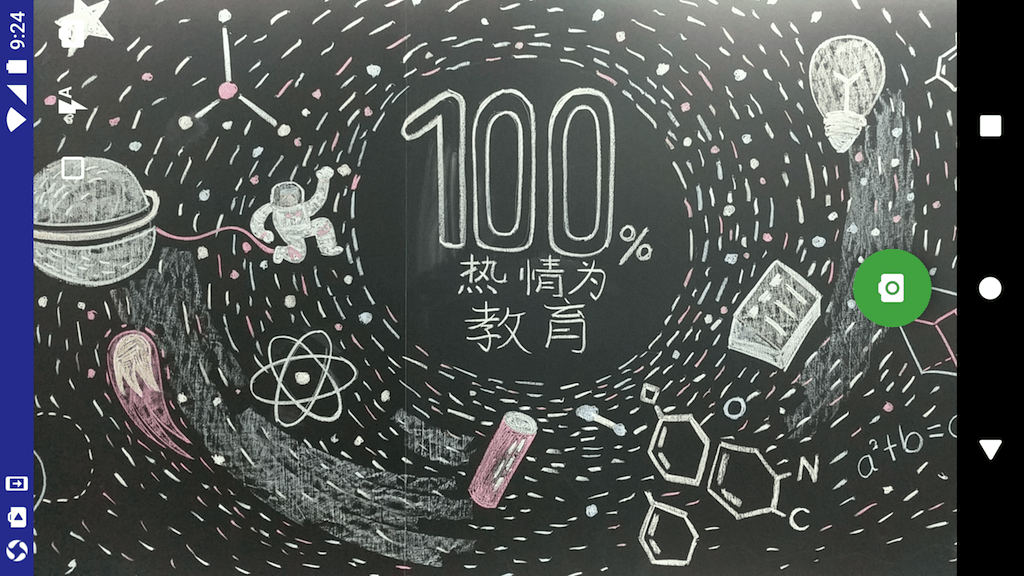 9:24
A
100%
热情为
教育
N
C
a²+b=